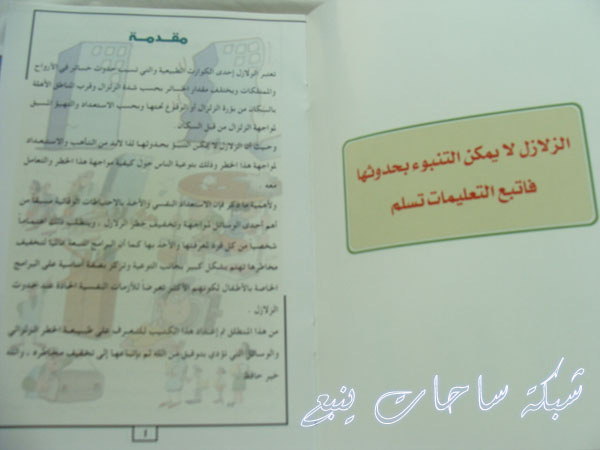 الزلازل لا يمكن التنبوء بحدوثها
فاتبع التعليمات تسلم
مقدمة
تعتبر الزلازل إحدى الكوارث الطبيعية والتي تسبب حدوث خسائر في الأرواح
والممتلكات ويختلف مقدار الخسائر بحسب شدة الزلزال وقرب المناطق الآهلة
بالسكان من بؤرة الزلزال أو الوقوع تجنبها وبحسب الاستعداد والتهيؤ المسبق
لمواجهة الزلزال من قبل السكان.
وحيث أن الزلازل لا يمكن التنبؤ بحدوثها لذا لابد من التأهب والاستعداد
لمواجهة هذا الخطر وذلك بتوعية الناس حول كيفية مواجهة هذا الخطر والتعامل
معه.
ولأهمية ما ذكر فإن الاستعداد النفسي والأخذ بالاحتياطات الوقائية مسبقاً من
أهم إحدى الوسائل لمواجهة وتخفيف خطر الزلازل، ويتطلب ذلك اهتماماً
شخصياً من كل فرد لمعرفتها والأخذ بها كما أن البرامج المتبعة عالمياً لتخفيف
مخاطرها تهتم بشكل كبير بجانب التوعية وتركز بصفة أساسية على البرامج
الخاصة بالأطفال لكونهم الأكثر تعرضاً للأزمات النفسية الحادة عند حدوث
الزلازل.
من هذا المنطلق تم إعداد هذا الكتيب للتعرف على طبيعة الخطر الزلزالي
والوسائل التي تؤدي بتوفيق من الله ثم بإتباعها إلى تخفيف مخاطره، والله
خير حافظ.
شبكة ساحات ينبع